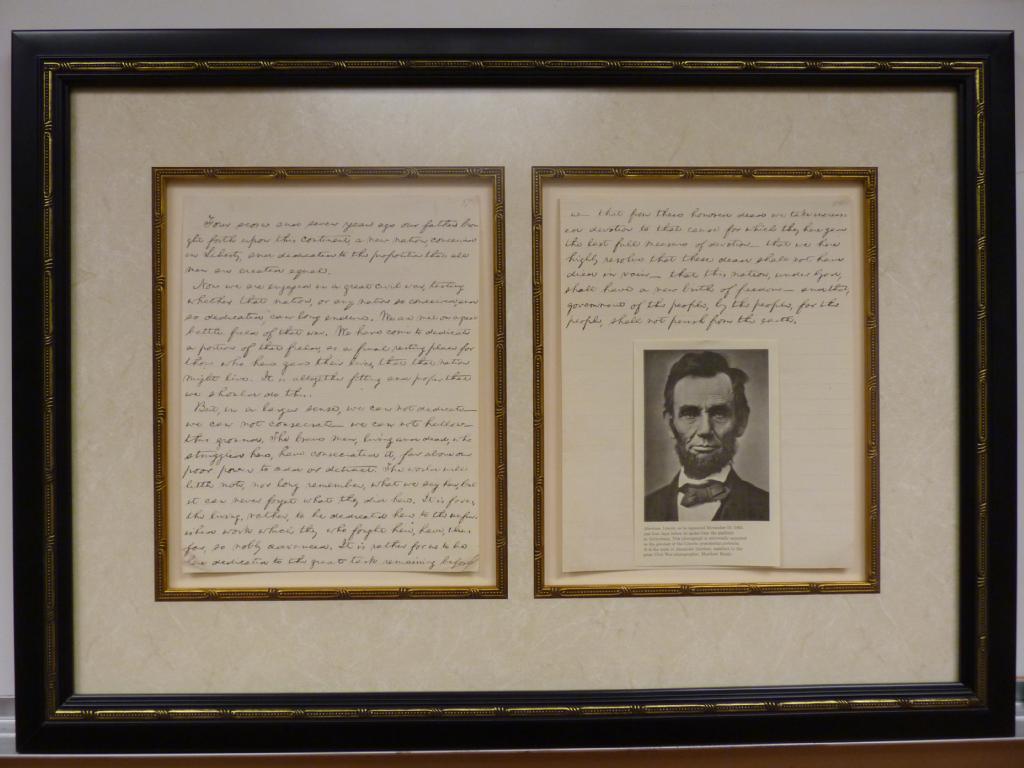 Four score and seven years ago our fathers brou
ght forth upon this continent, a new nation, conceived
in Liberty, and dedicated to the proposition that all
men are created equal.
Now we are engaged in a great civil war, testing
whether that nation, or any nation so conceived, and
so dedicated, can long endure. We are met on a great
battle field of that war. We have come to dedicate
a portion of that field, as a final resting place for
those who here gave their lives, that that nation
might live. It is altogether fitting and proper that
we should do this.
But, in a larger sense, we can not dedicate—
we can not consecrate— we can not hallow—
this ground. The brave men, living and dead, who
struggled here, have consecrated it, far above our
poor power to add or detract. The world will
little note, nor long remember, what we say here, but
it can never forget what they did here. It is for us,
the living, rather, to be dedicated here to the unfin-
ished work which they who fought here, have, thus
far, so nobly advanced. It is rather for us to be
here dedicated to the great task remaining before
us— that from these honored dead we take increas-
ed devotion to that cause for which they here gave
the last full measure of devotion— that we here
highly resolve that these dead shall not have
died in vain— that this nation, under God,
shall have a new birth of freedom— and that,
government of the people, by the people, for the
people, shall not perish from the earth.
Abraham Lincoln as he appeared November 15, 1863,
just four days before he spoke from the platform
at Gettysburg. This photograph is universally accepted
as the greatest of the Lincoln presidential portraits.
It is the work of Alexander Gardner, assistant to the
great Civil War photographer, Matthew Brady.